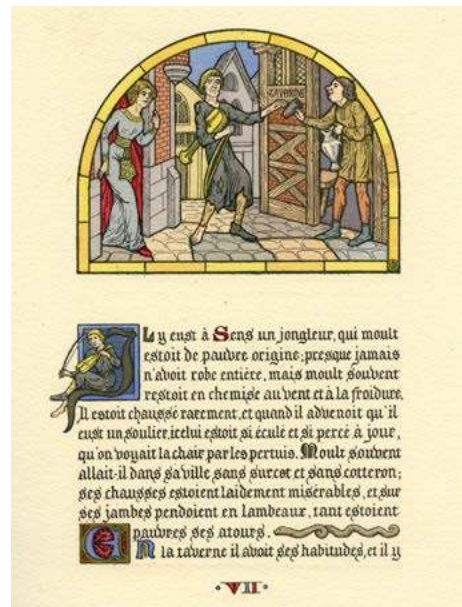 TAVERNE
IL y eust à Sens un jongleur, qui moult
estoit de pauvre origine; presque jamais
n'avoit robe entière, mais moult souvent
restoit en chemise au vent et à la froidure.
Il estoit chaussé rarement, et quand il advenoit qu'il
eust un soulier, icelui estoit si éculé et si percé à jour,
qu'on voyait la chair par les pertuis. Moult souvent
allait-il dans sa ville sans surcot et sans cotteron;
ses chausses estoient laidement misérables, et sur
ses jambes pendoient en lambeaux, tant estoient
pauvres ses atours.
EN la taverne il avoit ses habitudes, et il y
VII